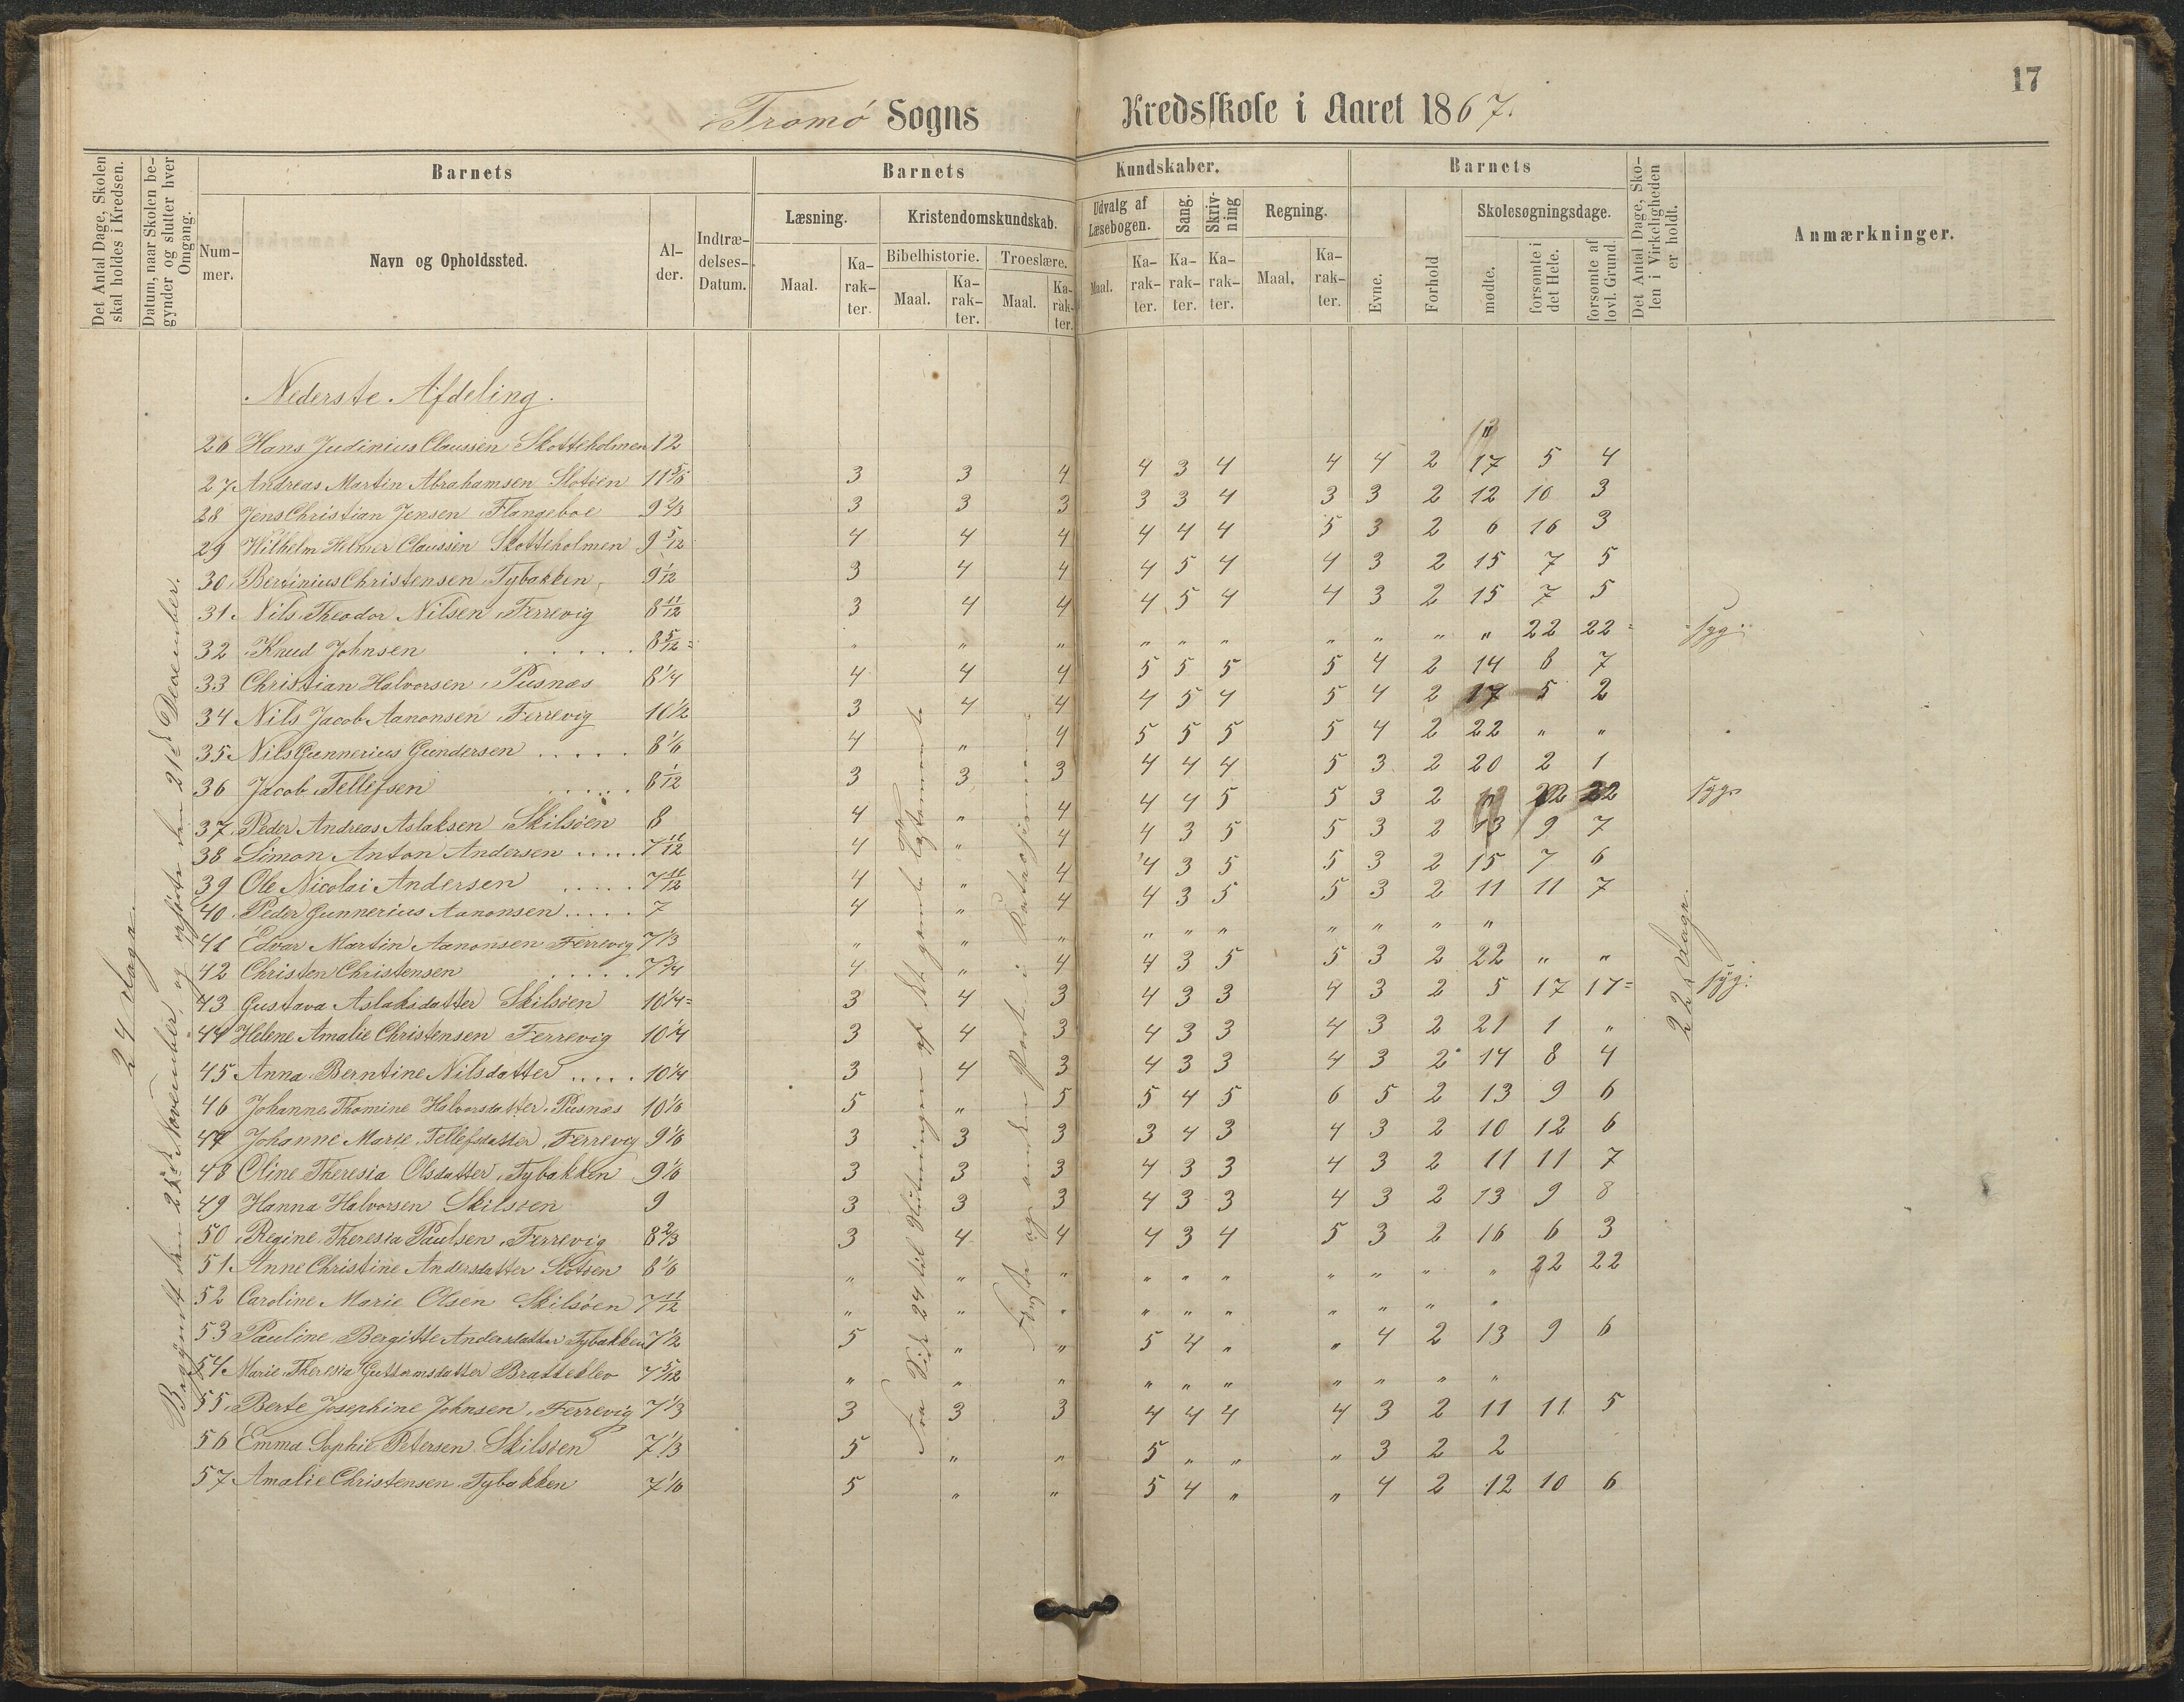 17
Tromö Sogns Kredsskole i Aaret 1867.
Det Antal Dage, Skolen skal holdes i Kredsen.
Datum, naar Skolen begynder og slutter hver Omgang.
Barnets
Nummer.
Navn og Opholdssted.
Alder.
Indtrædelses-Datum.
Barnets Kundskaber.
Læsning.
Maal.
Karakter.
Kristendomskundskab.
Bibelhistorie.
Maal.
Karakter.
Troeslære.
Maal.
Karakter.
Udvalg af Læsebogen.
Maal.
Karakter.
Sang.
Karakter.
Skrivning
Karakter.
Regning.
Maal.
Karakter.
Barnets
Evne.
Forhold
Skolesøgningsdage.
mødte.
forsømte i det Hele.
forsømte af lovl. Grund.
Det Antal Dage, Skolen i Virkeligheden er holdt.
Anmærkninger.
24 dage.
Begyndt den 25de November, og den 21de December.
Nederste Afdeling.
26 Hans Judinius Claussen Skotteholmen 12
27 Andreas Martin Abrahamsen Slotöen 11 5/6 3 3 4 4 3 4 4 4 2 17 5 4
28 Jens Christian Jensen Flangeboe 9 2/3 3 3 3 3 3 4 3 3 2 12 10 3
29 Wilhelm Helmer Claussen Skotteholmen 9 5/12 4 4 4 4 4 4 5 3 2 6 16 3
30 Bertinius Christensen Tybakken 9 1/12 3 4 4 4 5 4 4 3 2 15 7 5
31 Nils Theodor Nilsen Ferrevig 8 11/12 3 4 4 4 5 4 4 3 2 15 7 5
32 Knud Johnsen ..... 8 5/12 " " " " " " " " " " 22 22 syg.
33 Christian Halvorsen Pusnæs 8 1/4 4 4 4 5 5 5 5 4 2 14 8 7
34 Nils Jacob Aanonsen Ferrevig 10 1/2 3 4 4 4 5 4 5 4 2 17 5 2
35 Nils Gunnerius Gundersen ..... 8 1/6 4 " 4 5 5 5 5 4 2 22 " "
36 Jacob Tellefsen ..... 8 1/12 3 3 3 4 4 4 5 3 2 20 2 1
37 Peder Andreas Aslaksen Skilsöen 8 4 " 4 4 4 5 5 3 2 22 22 syg.
38 Simon Anton Andersen ..... 7 11/12 4 " 4 4 3 5 5 3 2 13 9 7
39 Ole Nicolai Andersen ..... 7 11/12 4 " 4 4 3 5 5 3 2 15 7 6
40 Peder Gunnerius Aanonsen ..... 7 4 " 4 4 3 5 5 3 2 11 11 7
41 Edvar Martin Aanonsen Ferrevig 7 1/3 " " " " " " " " " "
42 Christen Christensen ..... 7 3/4 4 " 4 4 3 5 5 3 2 22 " "
43 Gustava Aslaksdatter Skilsöen 10 1/4 3 4 3 4 3 3 4 3 2 5 17 17 syg.
44 Helene Amalie Christensen Ferrevig 10 1/4 3 4 3 4 3 3 4 3 2 21 1 "
45 Anna Berntine Nilsdatter ..... 10 1/4 3 4 3 4 3 3 4 3 2 14 8 4
46 Johanne Thomine Halvorsdatter Pusnæs 10 1/6 5 " 5 5 4 5 6 5 2 13 9 6
47 Johanne Marie Tellefsdatter Ferrevig 9 1/6 3 3 3 3 4 3 4 3 2 10 12 6
48 Oline Theresia Olsdatter Tybakken 9 1/6 3 3 3 4 3 3 4 3 2 11 11 7
49 Hanna Halvorsen Skilsöen 9 3 3 3 4 3 3 4 3 2 13 9 8
50 Regine Theresia Paulsen Ferrevig 8 2/3 3 4 4 4 3 4 5 3 2 16 6 3
51 Anne Christine Andersdatter Slotöen 8 1/6 " " " " " " " " " " 22 22
52 Caroline Marie Olsen Skilsöen 7 11/12 " " " " " " " " " "
53 Pauline Bergitte Andersdatter Tybakken 7 1/2 5 " " 5 4 " " 4 2 13 9 6
54 Marie Theresia Guttormsdatter Brattekleo 7 5/12 " " " " " " " " " "
55 Berte Josephine Johnsen Ferrevig 7 1/3 3 3 3 4 4 4 4 3 2 11 11 5
56 Emma Sophie Petersen Skilsöen 7 1/3 5 " " 5 " " " 3 2 2
57 Amalie Christensen Tybakken 7 1/6 5 " " 5 4 " " 4 2 12 10 6
Fra Side 24 til Slutningen af det gamle Testamente
Første og anden Part i
22 dage.